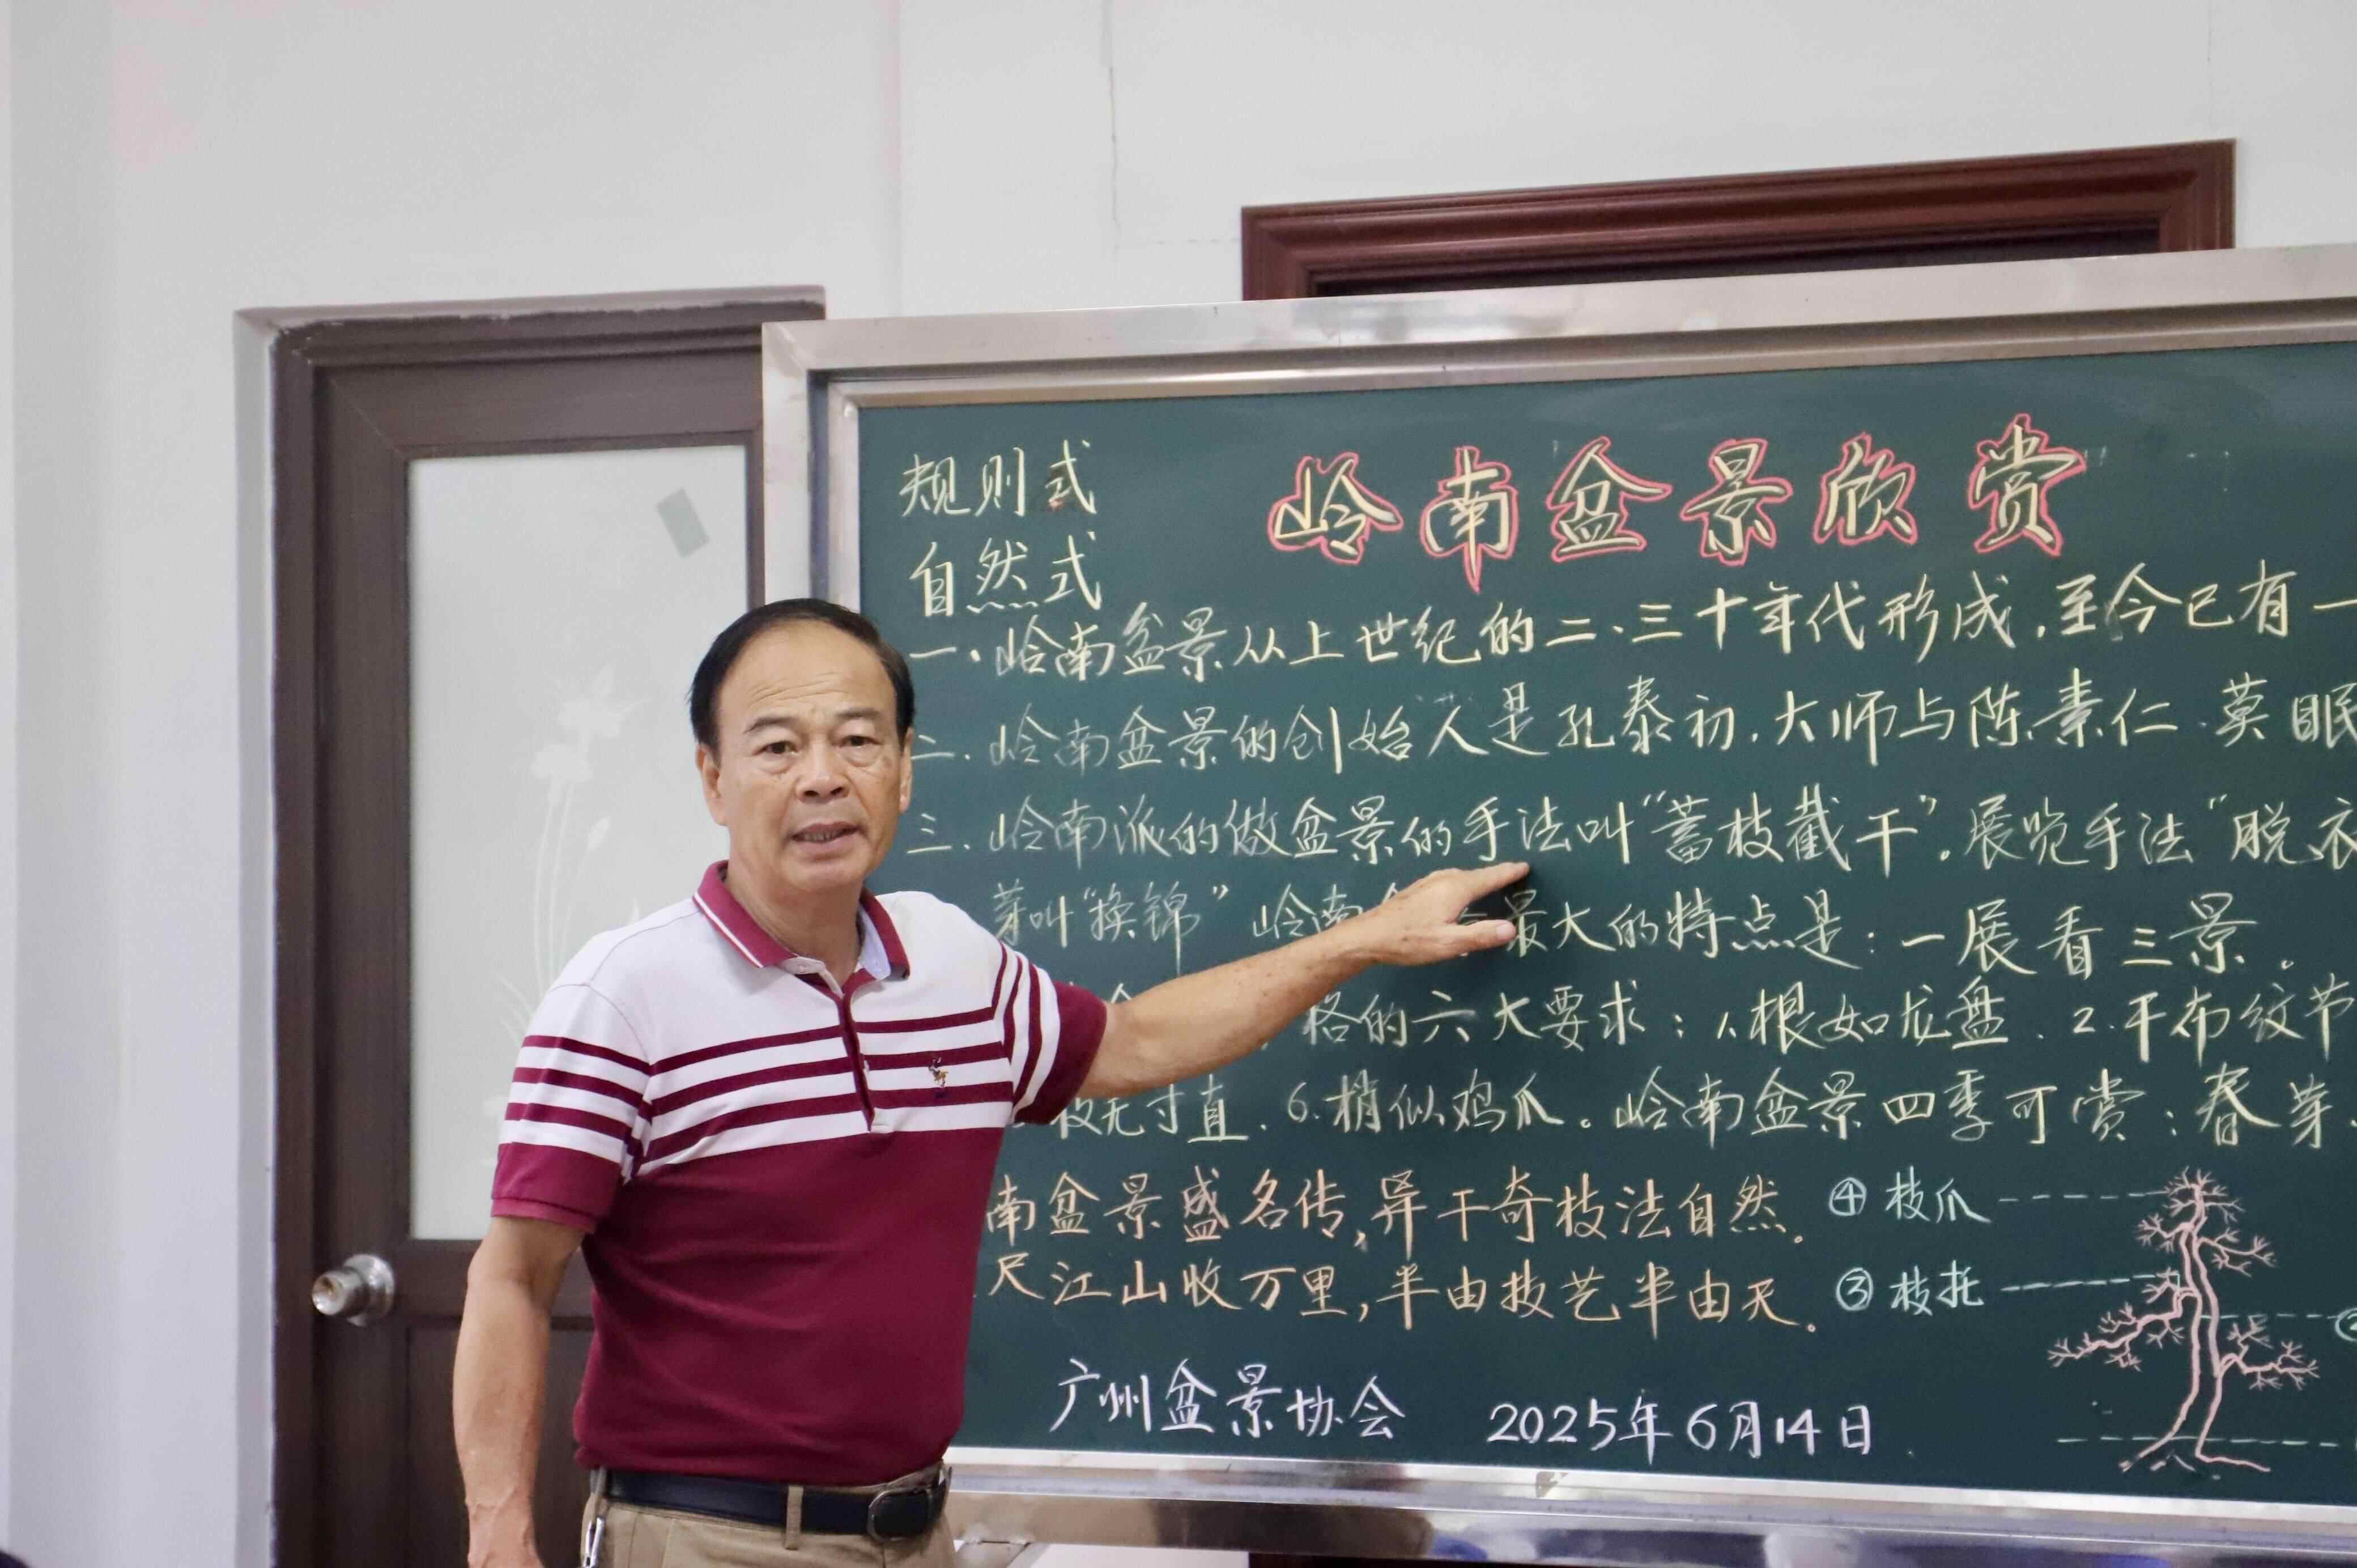 规则式
岭南盆景欣赏
自然式
一.岭南盆景从上世纪的二.三十年代形成.至今已有一
二.岭南盆景的创始人是孔泰初.大师与陈素仁.莫眠
三.岭南派的做盆景的手法叫“蓄枝截干”.展览手法“脱衣
芽叫“换锦” 岭南 最大的特点是:一展看三景。
格的六大要求:1.根如龙盘.2.干布纹节
枝无寸直.6.梢似鸡爪。岭南盆景四季可赏:春芽.
南盆景盛名传,异干奇枝法自然。
尺江山收万里,半由技艺半由天。
④枝爪
③枝托
广州盆景协会 2025年6月14日